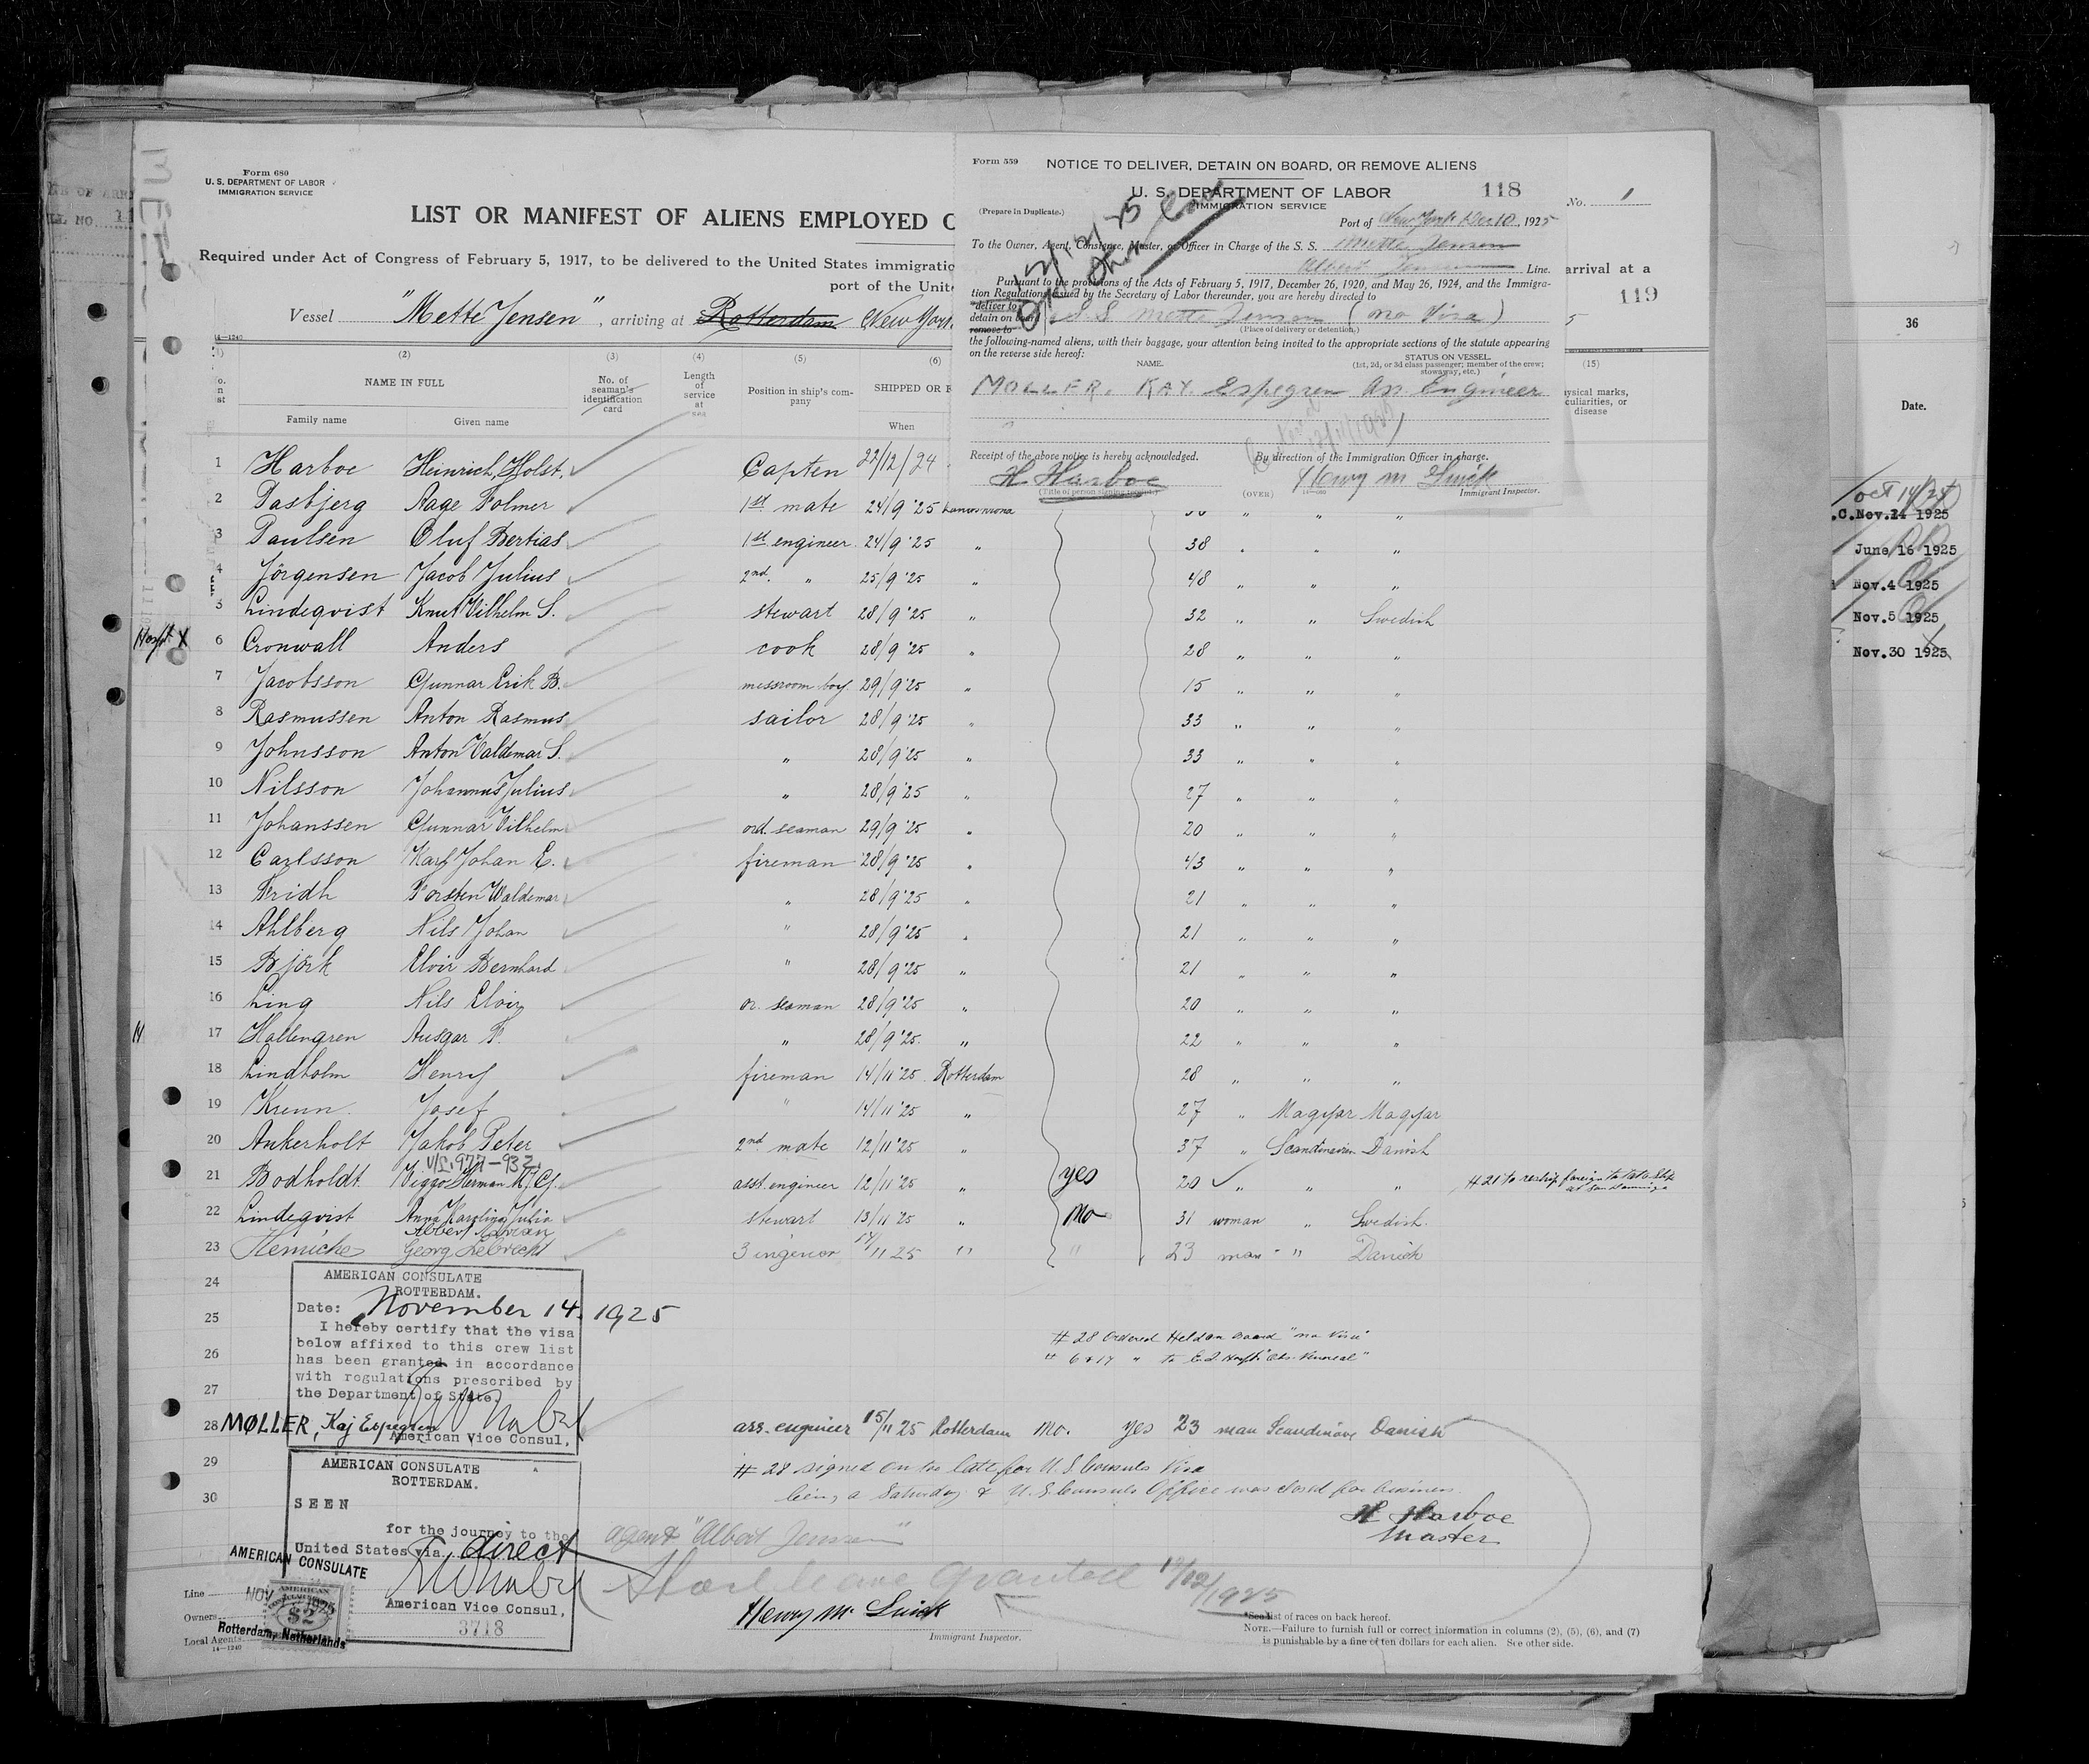 Form 680
U. S. DEPARTMENT OF LABOR
IMMIGRATION SERVICE
LIST OR MANIFEST OF ALIENS EMPLOYED O
Required under Act of Congress of February 5, 1917, to be delivered to the United States immigratio
port of the Unit
Vessel "Mette Jensen", arriving at Rotterdam New York
14—1240
(2) (3) (4) (5) (6)
NAME IN FULL
No. of seaman's identification card
Length of service at sea
Position in ship's company
SHIPPED OR E
Family name Given name When
Form 559
NOTICE TO DELIVER, DETAIN ON BOARD, OR REMOVE ALIENS
U. S. DEPARTMENT OF LABOR 118
IMMIGRATION SERVICE
(Prepare in Duplicate.)
Port of New York Dec 10, 1925
To the Owner, Agent, Consignee, Master, or Officer in Charge of the S. S. Mette Jensen
Albert Jensen Line.
Pursuant to the provisions of the Acts of February 5, 1917, December 26, 1920, and May 26, 1924, and the Immigra-
tion Regulations issued by the Secretary of Labor thereunder, you are hereby directed to
deliver to
detain on board S S Mette Jensen (no Visa)
remove to
(Place of delivery or detention.)
the following-named aliens, with their baggage, your attention being invited to the appropriate sections of the statute appearing
on the reverse side hereof:
NAME. STATUS ON VESSEL.
(1st, 2d, or 3d class passenger; member of the crew;
stowaway, etc.)
MOLLER. KAY. Espegren Ass. Engineer
Receipt of the above notice is hereby acknowledged. By direction of the Immigration Officer in charge.
H Harboe Henry M
(Title of person signing receipt.) (OVER) Immigrant Inspector.
No. 1
arrival at a
119
5
(15)
ysical marks,
culiarities, or
disease
36
Date.
oct 14/24
.C.Nov.14 1925
June 16 1925
Nov.4 1925
Nov.5 1925
Nov.30 1925
1 Harboe Heinrich, Holst. Capten 22/12/24
2 Aage Folmer 1st mate 24/9 '25
3 Paulsen Oluf Bertias 1st engineer 24/9 '25 " 38 " " "
4 Jörgensen Jacob Julius 2nd. " 25/9 '25 " 48 " " "
5 Lindeqvist Knut Vilhelm S. stewart 28/9 '25 " 32 " " Swedish
Hospt X 6 Cronwall Anders cook 28/9 '25 " 28 " " "
7 Jacobsson Gunnar Erik B. messroom boy 29/9 '25 " 15 " " "
8 Rasmussen Anton Rasmus sailor 28/9 '25 " 33 " " "
9 Johnsson Anton Valdemar S. " 28/9 '25 " 33 " " "
10 Nilsson Johannus Julius " 28/9 '25 " 27 " " "
11 Johanssen Gunnar Vilhelm ord. seaman 29/9 '25 " 20 " " "
12 Carlsson Karl Johan E. fireman 28/9 '25 " 43 " " "
13 Bridh Torsten Waldemar " 28/9 '25 " 21 " " "
14 Ahlberg Nils Johan " 28/9 '25 " 21 " " "
15 Björk Elvir Bernhard " 28/9 '25 " 21 " " "
16 Ling Nils Elvir or. seaman 28/9 '25 " 20 " " "
17 Hallengren Ansgar F. " 28/9 '25 " 22 " " "
18 Lindholm Henry fireman 14/11 '25 Rotterdam 28 " " "
19 Krenn Josef " 14/11 '25 " 27 " Magyar Magyar
20 Ankerholt Jakob Peter 2nd mate 12/11 '25 " 37 " Scandinavien Danish
21 Bodholdt Viggo Herman asst. engineer 12/11 '25 " yes 20 " " " #21 to reship foreign
22 Lindeqvist Anna Karolina Julia stewart 13/11 '25 " No 31 woman " Swedish.
23 Georg Lebrecht 3 ingenior 14/11 25 " " 23 man " " Danish
24
25
26
27
AMERICAN CONSULATE
ROTTERDAM.
Date: November 14. 1925
I hereby certify that the visa
below affixed to this crew list
has been granted in accordance
with regulations prescribed by
the Department of State.
American Vice Consul.
#28 Ordered Held on board "no Visa"
" 6 & 17 " to E.I. Hospt.
28 MØLLER, Kaj Espegren ass. engineer 15/11 25 Rotterdam No. yes 23 man Scandinave Danish
29
30
#28 signed on too late for U.S. Consuls Visa
being a Saturday & U.S. Consuls Office was closed for business.
H Harboe
Master
AMERICAN CONSULATE
ROTTERDAM.
SEEN
for the journey to the
United States via direct
American Vice Consul.
3718
AMERICAN CONSULATE
NOV 1925
AMERICAN
$2
Rotterdam, Netherlands
agent "Albert Jensen"
Shore leave granted 1925
Line
Owners
Local Agents
14—1240
Henry M.
Immigrant Inspector.
*See list of races on back hereof.
NOTE.—Failure to furnish full or correct information in columns (2), (5), (6), and (7)
is punishable by a fine of ten dollars for each alien. See other side.